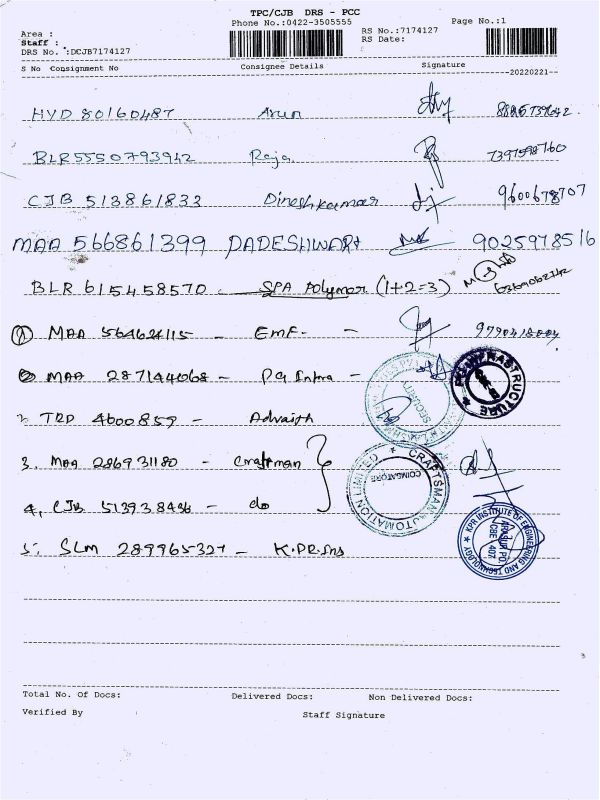 TPC/CJB DRS - PCC
Phone No.:0422-3505555 Page No.:1
Area : RS No.:7174127
Staff : RS Date:
DRS No. :DCJB7174127
S No Consignment No Consignee Details Signature
20220221
HYD 80160487 Arun
BLR5550793942 Raja 7397598760
CJB 513861833 Dineshkumar 9600678707
MAA 566861399 PADESHWARI 9025978516
BLR 615458570 SPA Polymer (1+2=3)
① MAA 564624115 - EMF -
② MAA 287144068 - PG Infra -
TRD 4600859 - Advaith
3. MAA 286931180 - Craftsman
4. CJB 513938436 - do
5. SLM 289965327 - K.PR.Ins
SECURITY
INFRASTRUCTURE
CRAFTSMAN AUTOMATION LIMITED
COIMBATORE
KPR INSTITUTE OF ENGINEERING AND TECHNOLOGY
CBE - 407
Total No. Of Docs: Delivered Docs: Non Delivered Docs:
Verified By Staff Signature